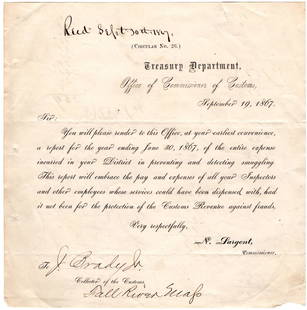 Recd Sept 20th 1867.
(CIRCULAR No. 26.)
Treasury Department,
Office of Commissioner of Customs,
September 19, 1867.
Sir:
You will please render to this Office, at your earliest convenience,
a report for the year ending June 30, 1867, of the entire expense
incurred in your District in preventing and detecting smuggling
This report will embrace the pay and expenses of all your Inspectors
and other employees whose services could have been dispensed with, had
it not been for the protection of the Customs Revenue against frauds.
Very respectfully,
N. Sargent,
Commissioner.
To J. Brady Jr
Collector of the Customs,
Fall River Mass